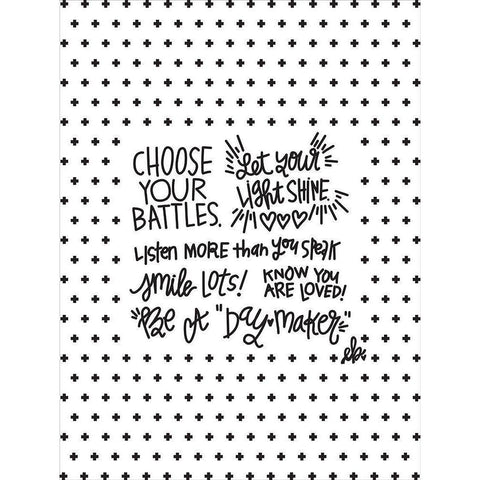 CHOOSE
YOUR
BATTLES.
Let your
light SHINE.
Listen MORE than you speak
smile LOTS!
KNOW YOU
ARE LOVED!
"Be A "Day maker"
eb.